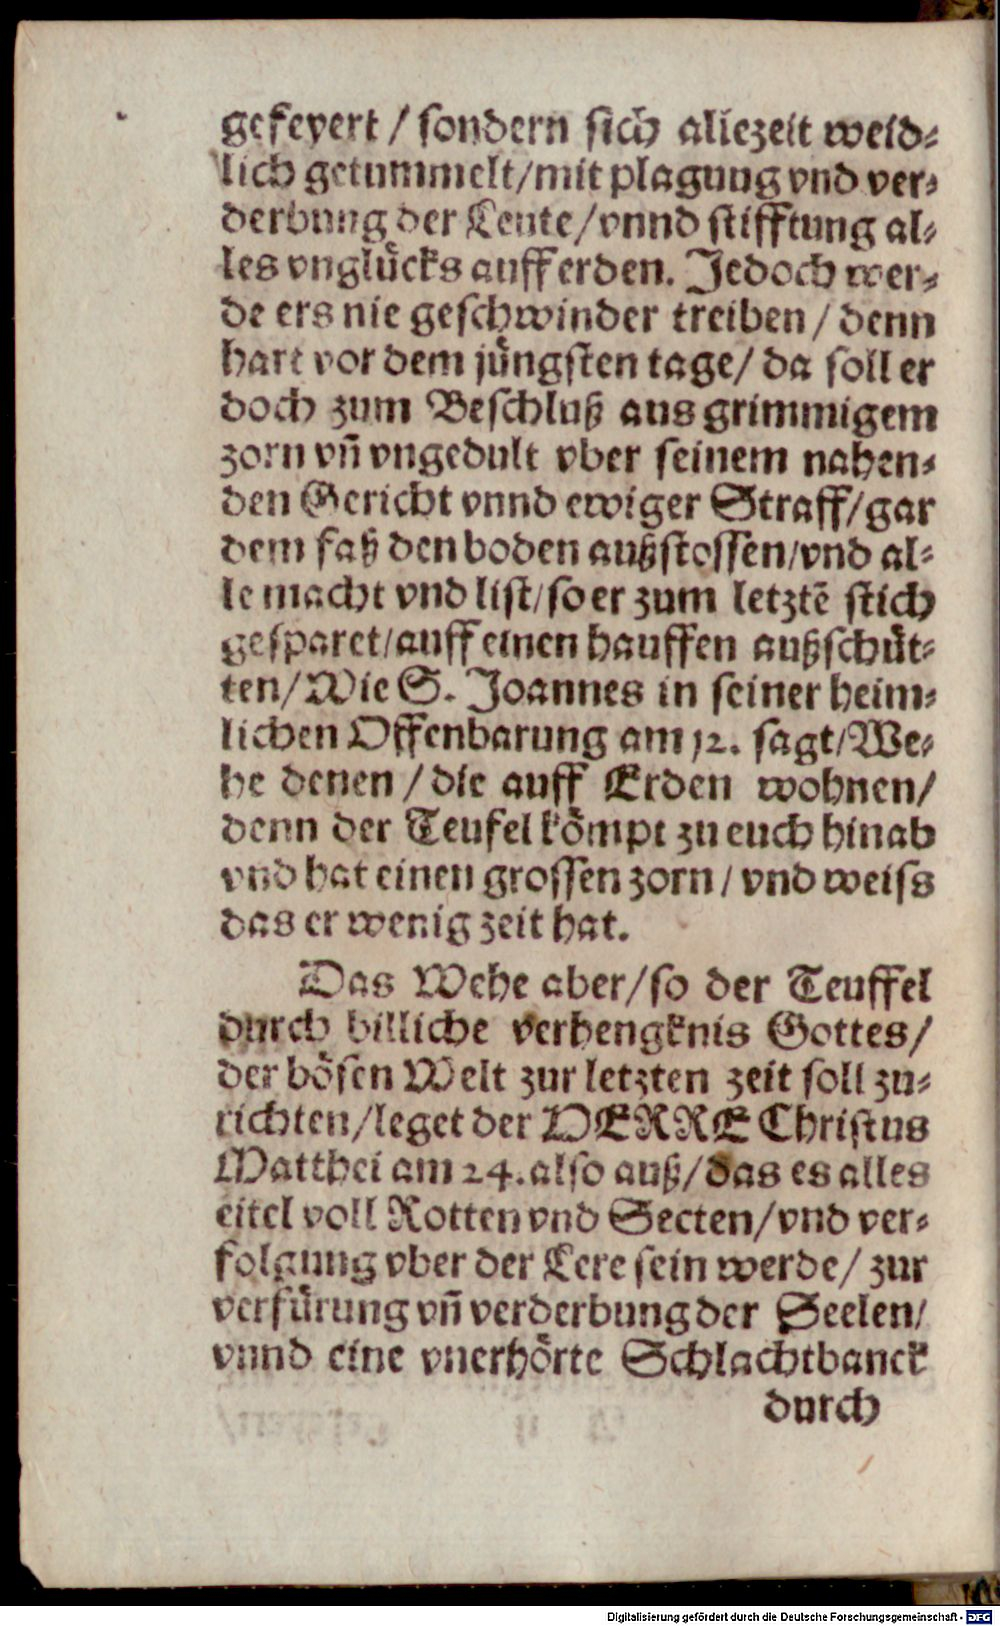 gefeyert / sondern sich allezeit weid⸗
lich getummelt/mit plagung vnd ver⸗
derbung der Leute/vnnd stifftung al⸗
les vnglücks auff erden. Jedoch wer⸗
de ers nie geschwinder treiben / denn
hart vor dem jüngsten tage/ da soll er
doch zum Beschluß aus grimmigem
zorn vñ vngedult vber seinem nahen⸗
den Gericht vnnd ewiger Straff/gar
dem faß den boden außstossen/vnd al⸗
le macht vnd list/so er zum letztē stich
gesparet/auff einen hauffen außschüt⸗
ten/Wie S. Joannes in seiner heim⸗
lichen Offenbarung am 12. sagt/We⸗
he denen / die auff Erden wohnen/
denn der Teufel kömpt zu euch hinab
vnd hat einen grossen zorn / vnd weiss
das er wenig zeit hat.
Das Wehe aber/so der Teuffel
durch billiche verhengknis Gottes/
der bösen Welt zur letzten zeit soll zu⸗
richten/leget der HERRE Christus
Matthei am 24. also auß/das es alles
eitel voll Rotten vnd Secten/vnd ver⸗
folgung vber der Lere sein werde/ zur
verfürung vñ verderbung der Seelen/
vnnd eine vnerhörte Schlachtbanck
durch
Digitalisierung gefördert durch die Deutsche Forschungsgemeinschaft - DFG